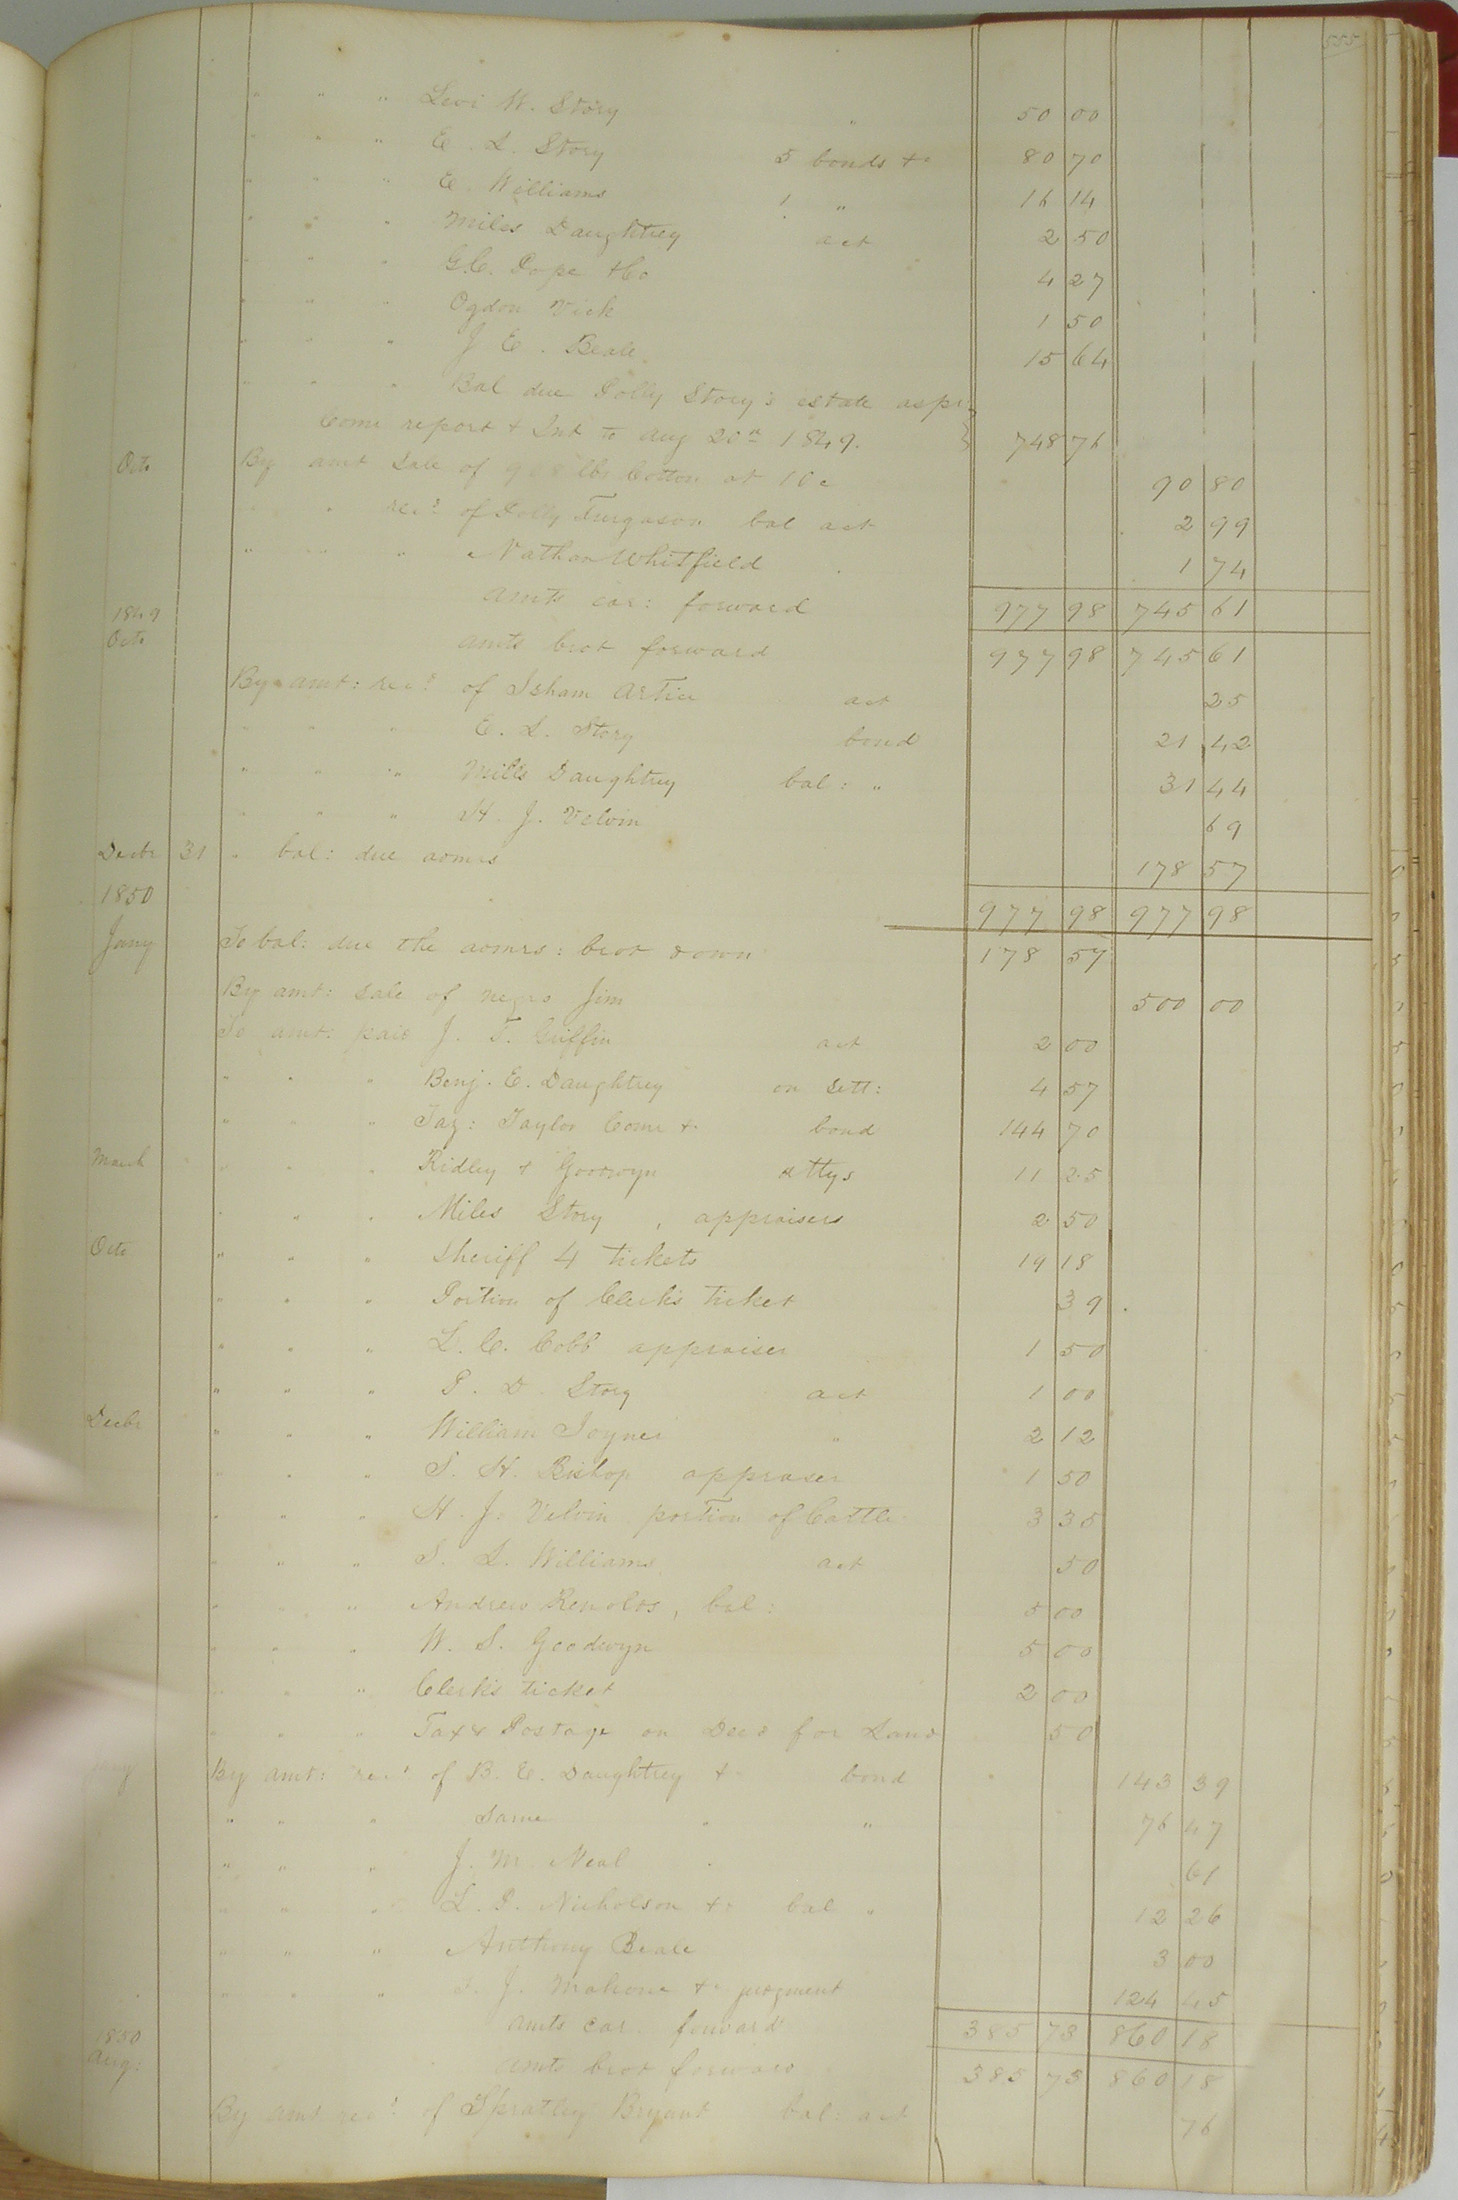 555
" " " Levi W. Story " 50 00
" " " E. L. Story 5 bonds &c 80 70
" " " E. Williams 1 " 16 14
" " " Miles Daughtrey act 2 50
" " " G.C. Pope & Co 4 27
" " " Ogdon Vick 1 50
" " " J E. Beale 15 64
" " " Bal due Polly Story's estate as pr
Comr report & Int to Aug 20th 1849. 748 76
Octo By amt Sale of 908 lbs Cotton at 10c 90 80
" " recd of Polly Turgason bal act 2 99
" " " Nathan Whitfield 1 74
amts car: forward 977 98 745 61
1849
Octo amts brot forward 977 98 745 61
By amt: recd of Isham Artice act 25
" " " E. L. Story bond 21 42
" " " Mills Daughtrey bal: " 31 44
" " " H. J. Velvin 69
Decbr 31 " bal: due admrs 178 57
1850 977 98 977 98
Jany To bal: due the admrs: brot down 178 57
By amt: Sale of negro Jim 500 00
To amt: paid J. T. Griffin act 2 00
" " " Benj. E. Daughtrey on Sett: 4 57
" " " Taz: Taylor Comr &c bond 144 70
March " " " Ridley & Goodwyn attys 11 25
" " " Miles Story, appraisers 2 50
Octo " " " Sheriff 4 tickets 19 18
" " " Portion of Clerk's ticket 39
" " " L. C. Cobb appraiser 1 50
" " " P. D. Story act 1 00
Decbr " " " William Joyner " 2 12
" " " S. H. Bishop appraser 1 50
" " " H. J. Velvin portion of Cattle 3 35
" " " S. L. Williams act 50
" " " Andrew Renolds, bal: 5 00
" " " W. S. Goodwyn 5 00
" " " Clerk's ticket 2 00
" " " Tax & Postage on Deed for Land 50
By amt: recd of B. E. Daughtrey & bond 143 39
" " " Same " " 76 47
" " " J. M. Neal 61
" " " L. P. Nicholson &c bal " 12 26
" " " Anthony Beale 3 00
" " " J. Mahone &c judgment 124 45
amts car forward 385 73 860 18
1850
Aug: amts brot forward 385 73 860 18
By amt recd of Spratley Bryant bal: act 76